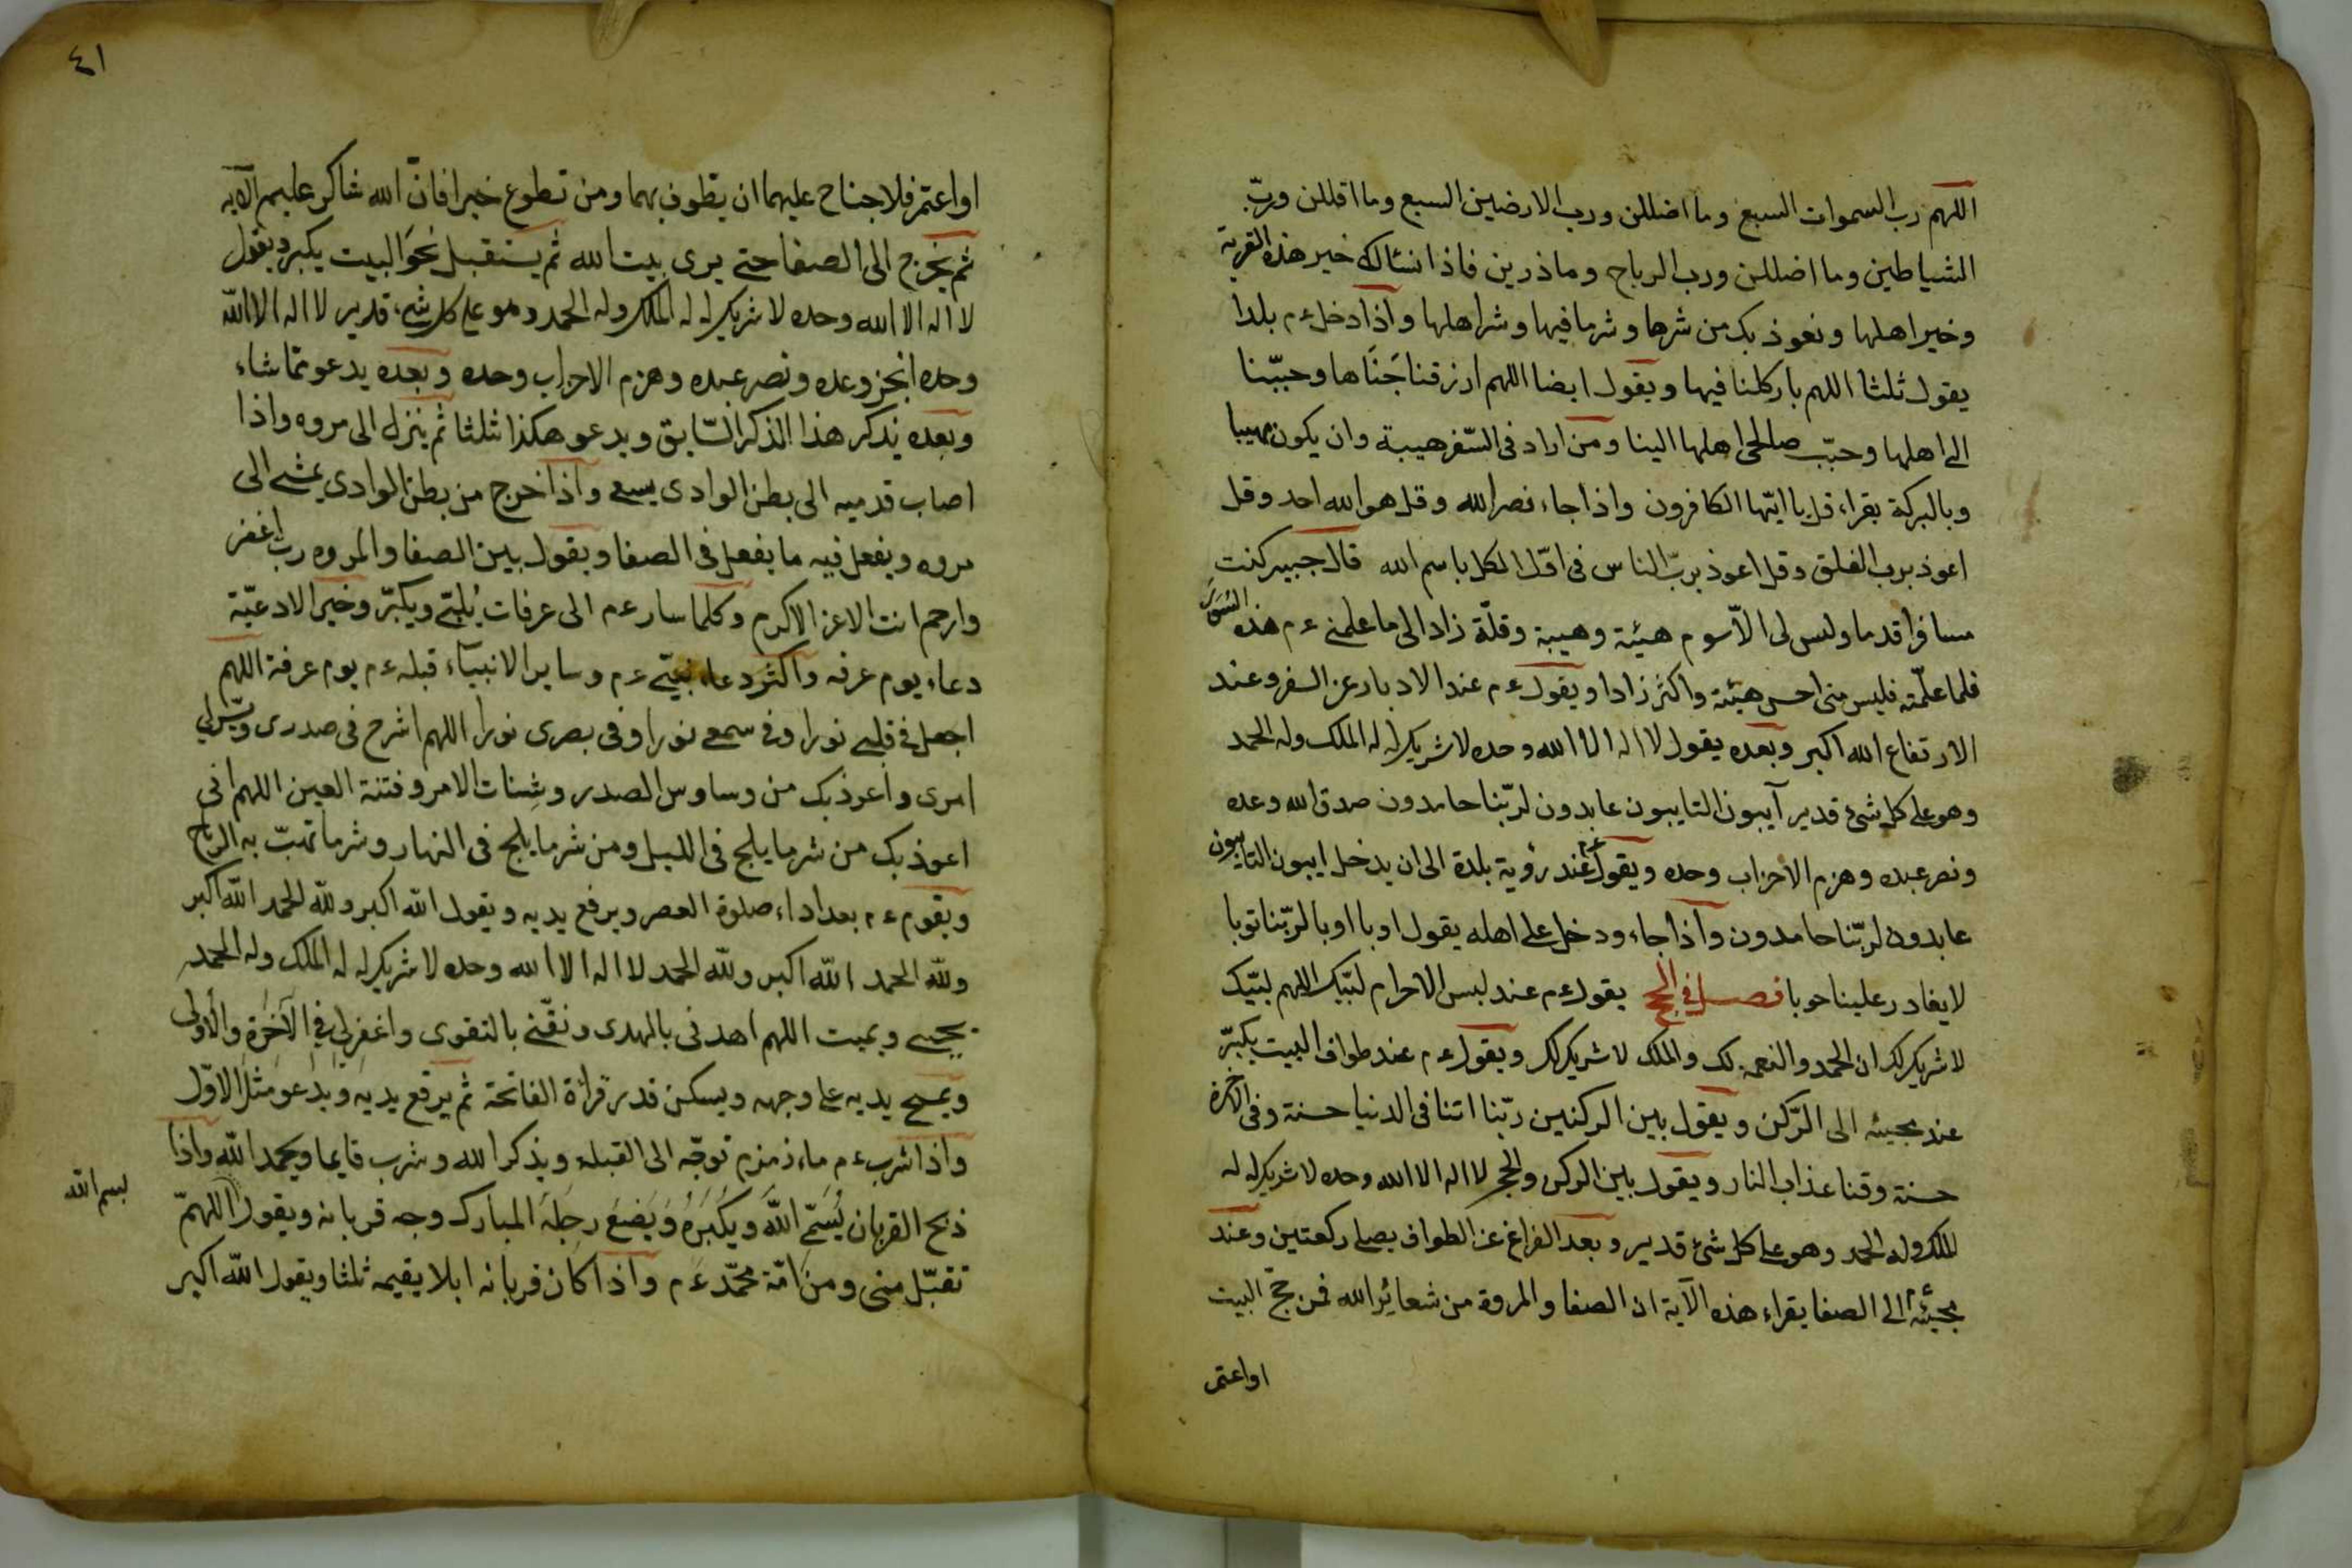 اللهم رب السموات السبع وما اضللن ورب الارضين السبع وما اقللن وربّ
الشياطين وما اضللن ورب الرياح وما ذرين فاذا نسئالك خير هذه القرية
وخير اهلها ونعوذ بك من شرها وشر ما فيها وشر اهلها واذا دخل ءم بلدا
يقول ثلثا اللهم بارك لنا فيها ويقول ايضا اللهم ارزقنا جَنَاها وحببّنا
الى اهلها وحبّب صالحى اهلها الينا ومن اراد فى السّفر هيبة وان يكون مهيبا
وبالبركة يقراء قل يا ايّها الكافرون واذا جاء نصر الله وقل هو الله احد وقل
اعوذ برب الفلق وقل اعوذ بربّ الناس فى اوّل الكل باسم الله قال جبير كنت
مسافرا قدما وليس لى الاّ سوم هيئة وهيبة وقلّة زاد الى ما علمنى ءم هذه السّور
فلما علّمته فليس منى احسن هيئة واكثر زادا ويقول ءم عند الادبار عن السفر وعند
الارتفاع الله اكبر وبعده يقول لا اله الا الله وحده لا شريك له له الملك وله الحمد
وهو على كل شئ قدير آيبون التايبون عابدون لربّنا حامدون صدق الله وعده
ونصر عبده وهزم الاحزاب وحده ويقول ءم عند رؤية بلدة الى ان يدخل ايبون التايبون
عابدون لربّنا حامدون واذا جاء ودخل على اهله يقول اوبا اوبا لربّنا توبا
لا يغادر علينا حوبا فصل فى الحج يقول ءم عند لبس الاحرام لبّيك اللهم لبّيك
لا شريك لك ان الحمد والنعمة لك والملك لا شريك لك ويقول ءم عند طواف البيت يكبرّ
عند مجيئه الى الرّكن ويقول بين الركنين ربّنا اتنا فى الدنيا حسنة وفى الاخرة
حسنة وقنا عذاب النار ويقول بين الركن والحجر لا اله الا الله وحده لا شريك له له
الملك وله الحمد وهو على كل شئ قدير وبعد الفراغ عن الطواف يصلى ركعتين وعند
مجيئه ءم الى الصفا يقراء هذه الآية ان الصفا والمروة من شعائر الله فمن حجّ البيت
او اعتمر
٤١
او اعتمر فلا جناح عليهما ان يطوف بهما ومن تطوع خيرا فانّ الله شاكر عليم الآيه
ثم يخرج الى الصفا حتى يرى بيت الله ثم يستقبل نحوَ البيت يكبر ويقول
لا اله الا الله وحده لا شريك له له الملك وله الحمد وهو على كل شىء قدير لا اله الا اللّه
وحده انجز وعده ونصر عبده وهزم الاحزاب وحده وبعده يدعو بما شاء
وبعده يذكر هذا الذكر السّابق ويدعو هكذا ثلثا ثم ينزل الى مروه واذا
اصاب قدميه الى بطن الوادى يسعى واذا خرج من بطن الوادى يمشى الى
مروه ويفعل فيه ما يفعل فى الصفا ويقول بين الصفا والمروه رب اغفر
وارحم انت الاعز الاكرم وكلما سار ءم الى عرفات يُلبّى ويكبّر وخير الادعيّة
دعاء يوم عرفه واكثر دعاء نبيّى ءم وساير الانبيآء قبله ءم يوم عرفة اللهم
اجعل فى قلبى نورا وفى سمعى نورا وفى بصرى نورا اللهم اشرح فى صدرى ويسّر لى
امرى واعوذ بك من وساوس الصدر وشِتات الامر وفتنة العين اللهم انى
اعوذ بك من شر ما يلج فى الليل ومن شر ما يلج فى النهار وشر ما تهبّ به الرياح
ويقوم ءم بعد اداء صلوة العصر ويرفع يديه ويقول الله اكبر وللّه الحمد اللّه اكبر
وللّه الحمد اللّه اكبر وللّه الحمد لا اله الا الله وحده لا شريك له له الملك وله الحمد
يحيى ويميت اللهم اهدنى بالهدى ونقّنى بالتقوى واغفر لى فى الآخرة والأولى
ويمسح يديه على وجهه ويسكن قدر قرائة الفاتحة ثم يرفع يديه ويدعو مثل الاوّل
واذا شرب ءم ماء زمزم توجّه الى القبله ويذكر الله وشرب قايما ويحمد اللّه واذا
ذبح القربان يُسَمّى اللّهَ ويكبّرهُ ويَضَعَ رجلَهَ المبارك وجه قربانه ويقول اللهمّ
بسم الله
تقبّل منى ومن امّة محمّد ءم واذا كان قربانه ابلا يقيمه ثلثا ويقول اللّه اكبر